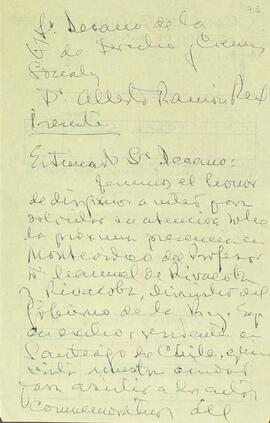 Sr Decano de la
de Derecho y Ciencias
Sociales
Dr. Alberto Ramón Real
Presente
Estimado Sr Decano:
Tenemos el honor
de dirigirnos a usted para
solicitar su atención sobre
la próxima presencia en
Montevideo del Profesor
D. Manuel de Rivacoba
y Rivacoba, Ministro del
Gobierno de la Rep. Esp.
en exilio, residente en
Santiago de Chile, quien
visita nuestra ciudad
para asistir a los actos
conmemorativos del